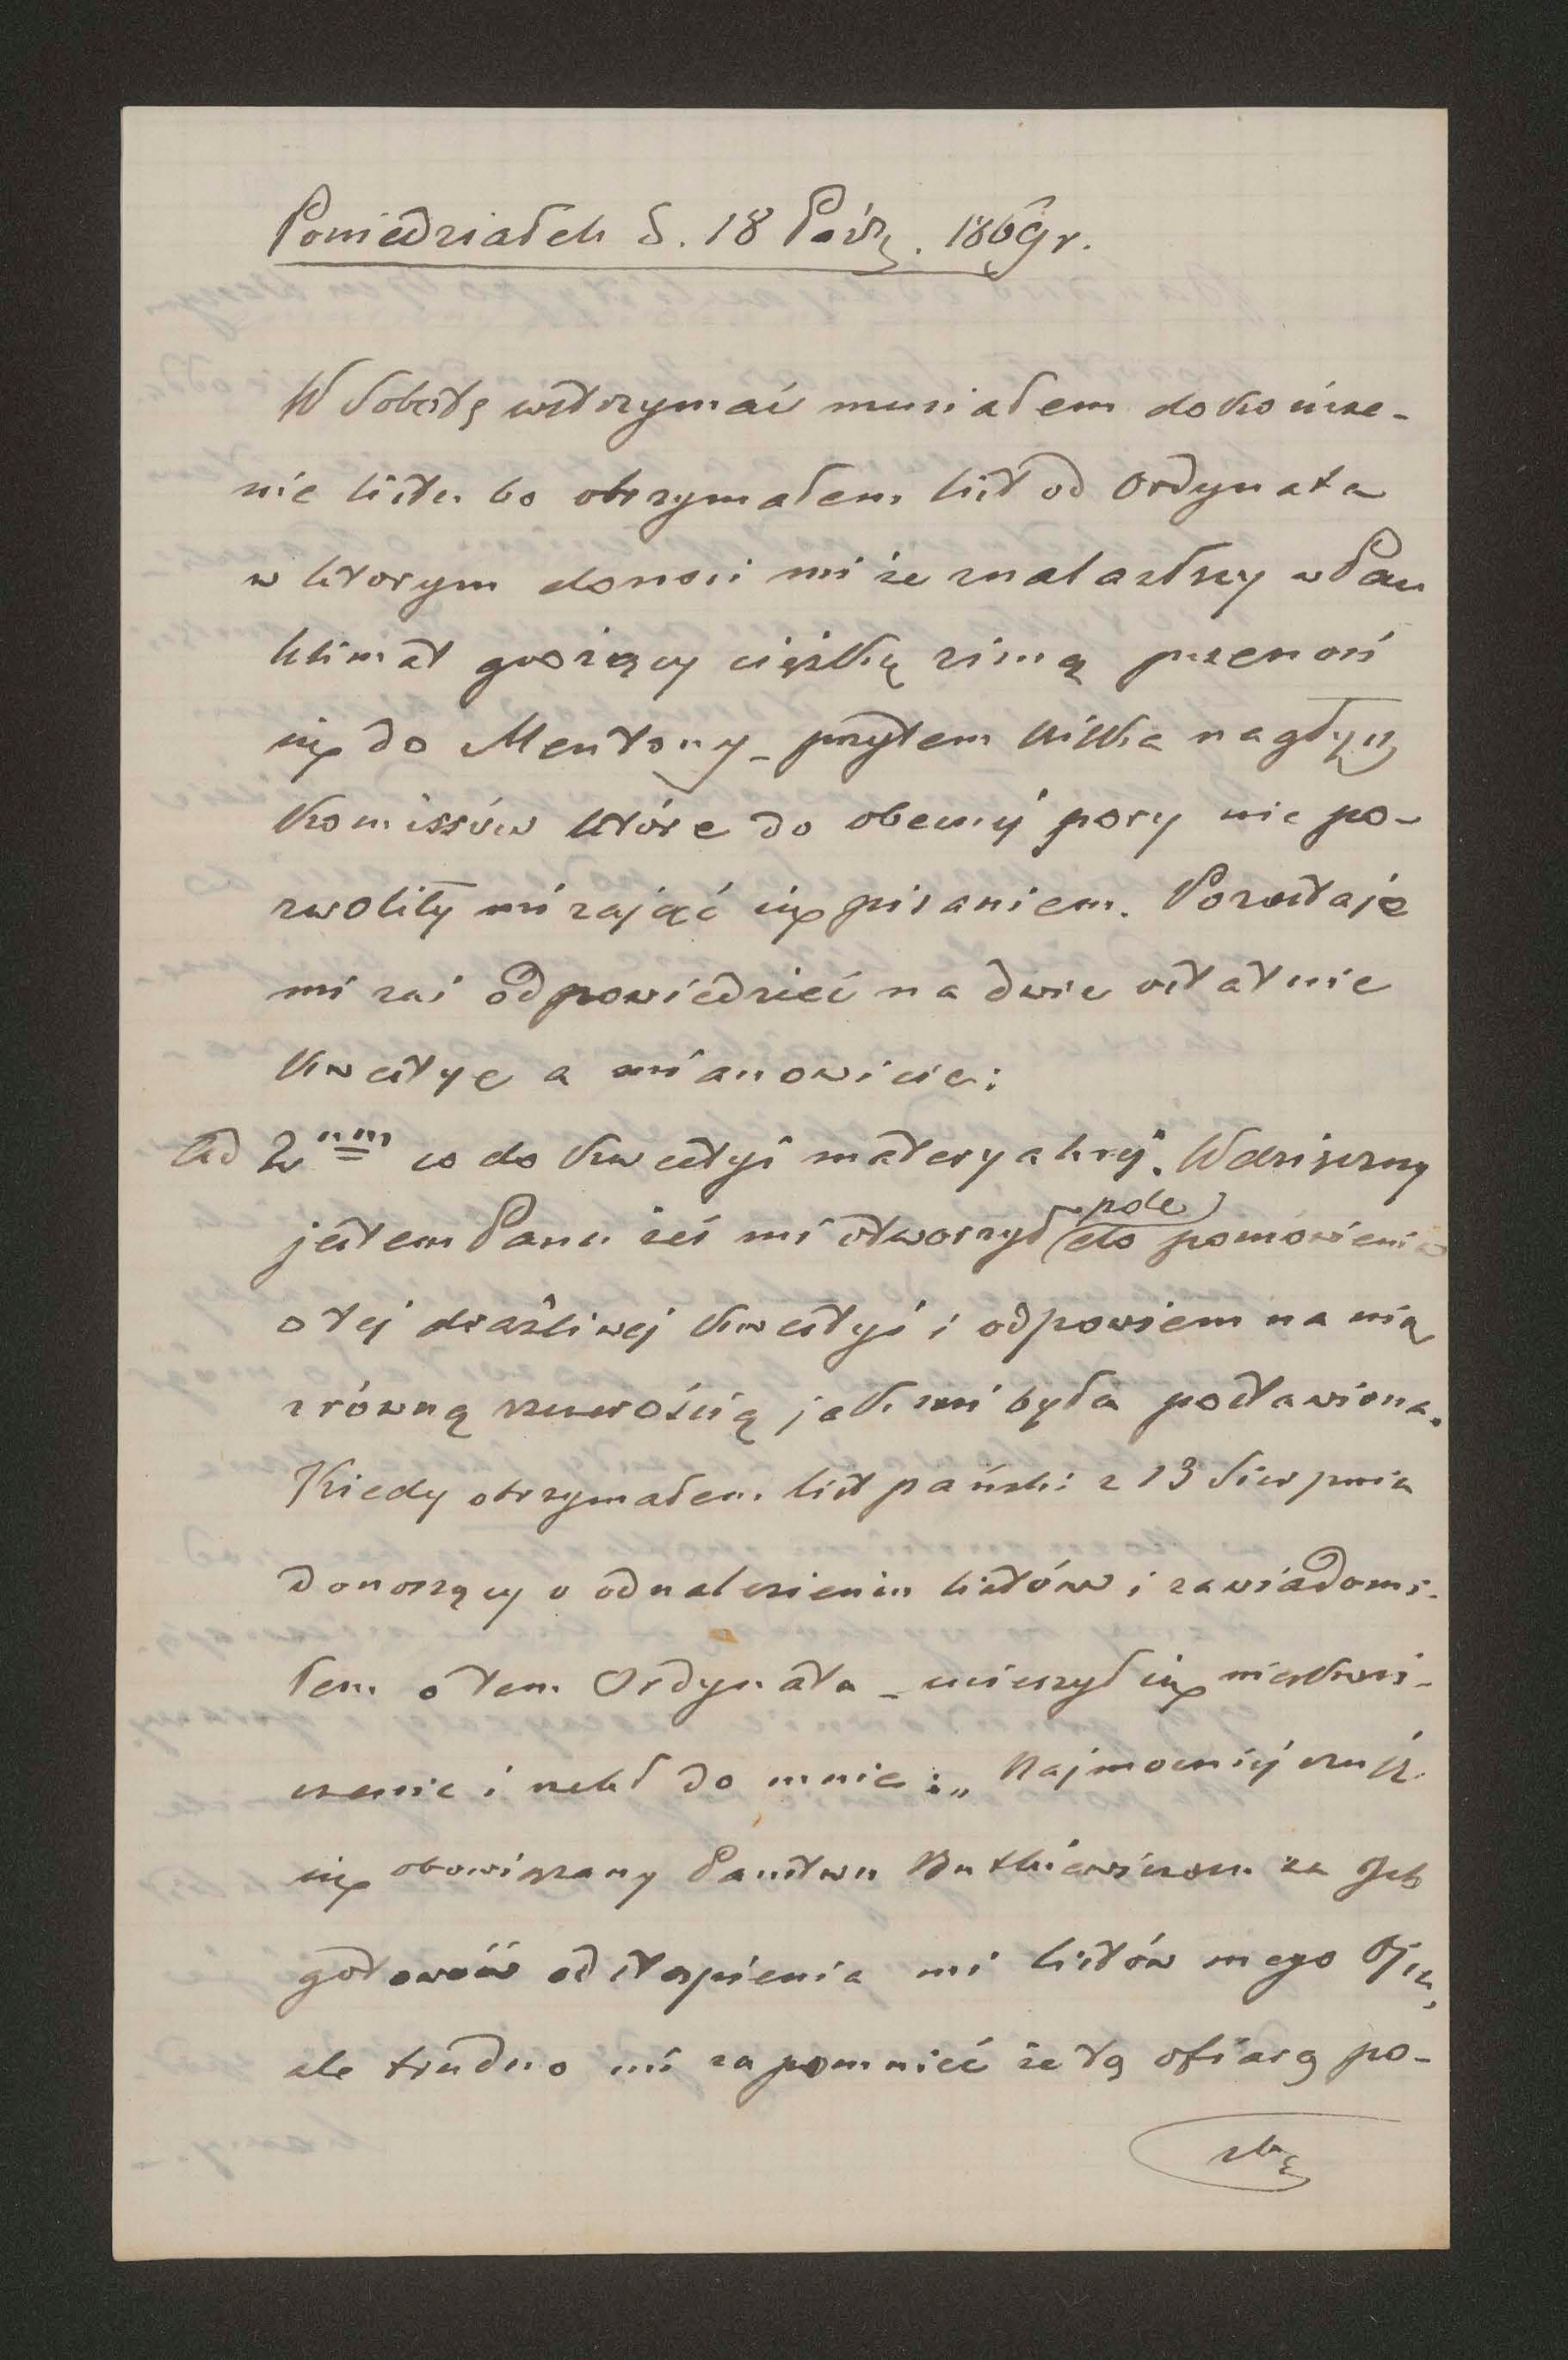 Poniedziałek d. 18 Paźdz. 1869 r.
W Sobotę wstrzymać musiałem dokończe-
nie listu bo otrzymałem list od Ordynata
w ktorym donosi mi że znalazłszy w Pau
klimat grożący ciężką zimą przenosi
się do Mentony – przytem kilka nagłych
komissów które do obecnéj pory nie po-
zwoliły mi zająć się pisaniem. Pozostaje
mi zaś odpowiedzieć na dwie ostatnie
kwestye a mianowicie:
Ad 2um co do kwestyi materyalnéj. Wdzięczny
jestem Panu żeś mi otworzył pole do pomówienia
o tej drażliwej kwestyi i odpowiem na nią
z równą szczerością jak mi była postawiona.
Kiedy otrzymałem list pański z 13 Sierpnia
donoszący o odnalezieniu listów i zawiadomi-
łem o tem Ordynata – ucieszył się nieskoń-
czenie i rzekł do mnie: „Najmocniéj czuję
się obowiązany Państwu Butkiewiczom za Ich
gotowość odstąpienia mi listów mego Ojca,
ale trudno mi zapomnieć że tą ofiarą po-
zba